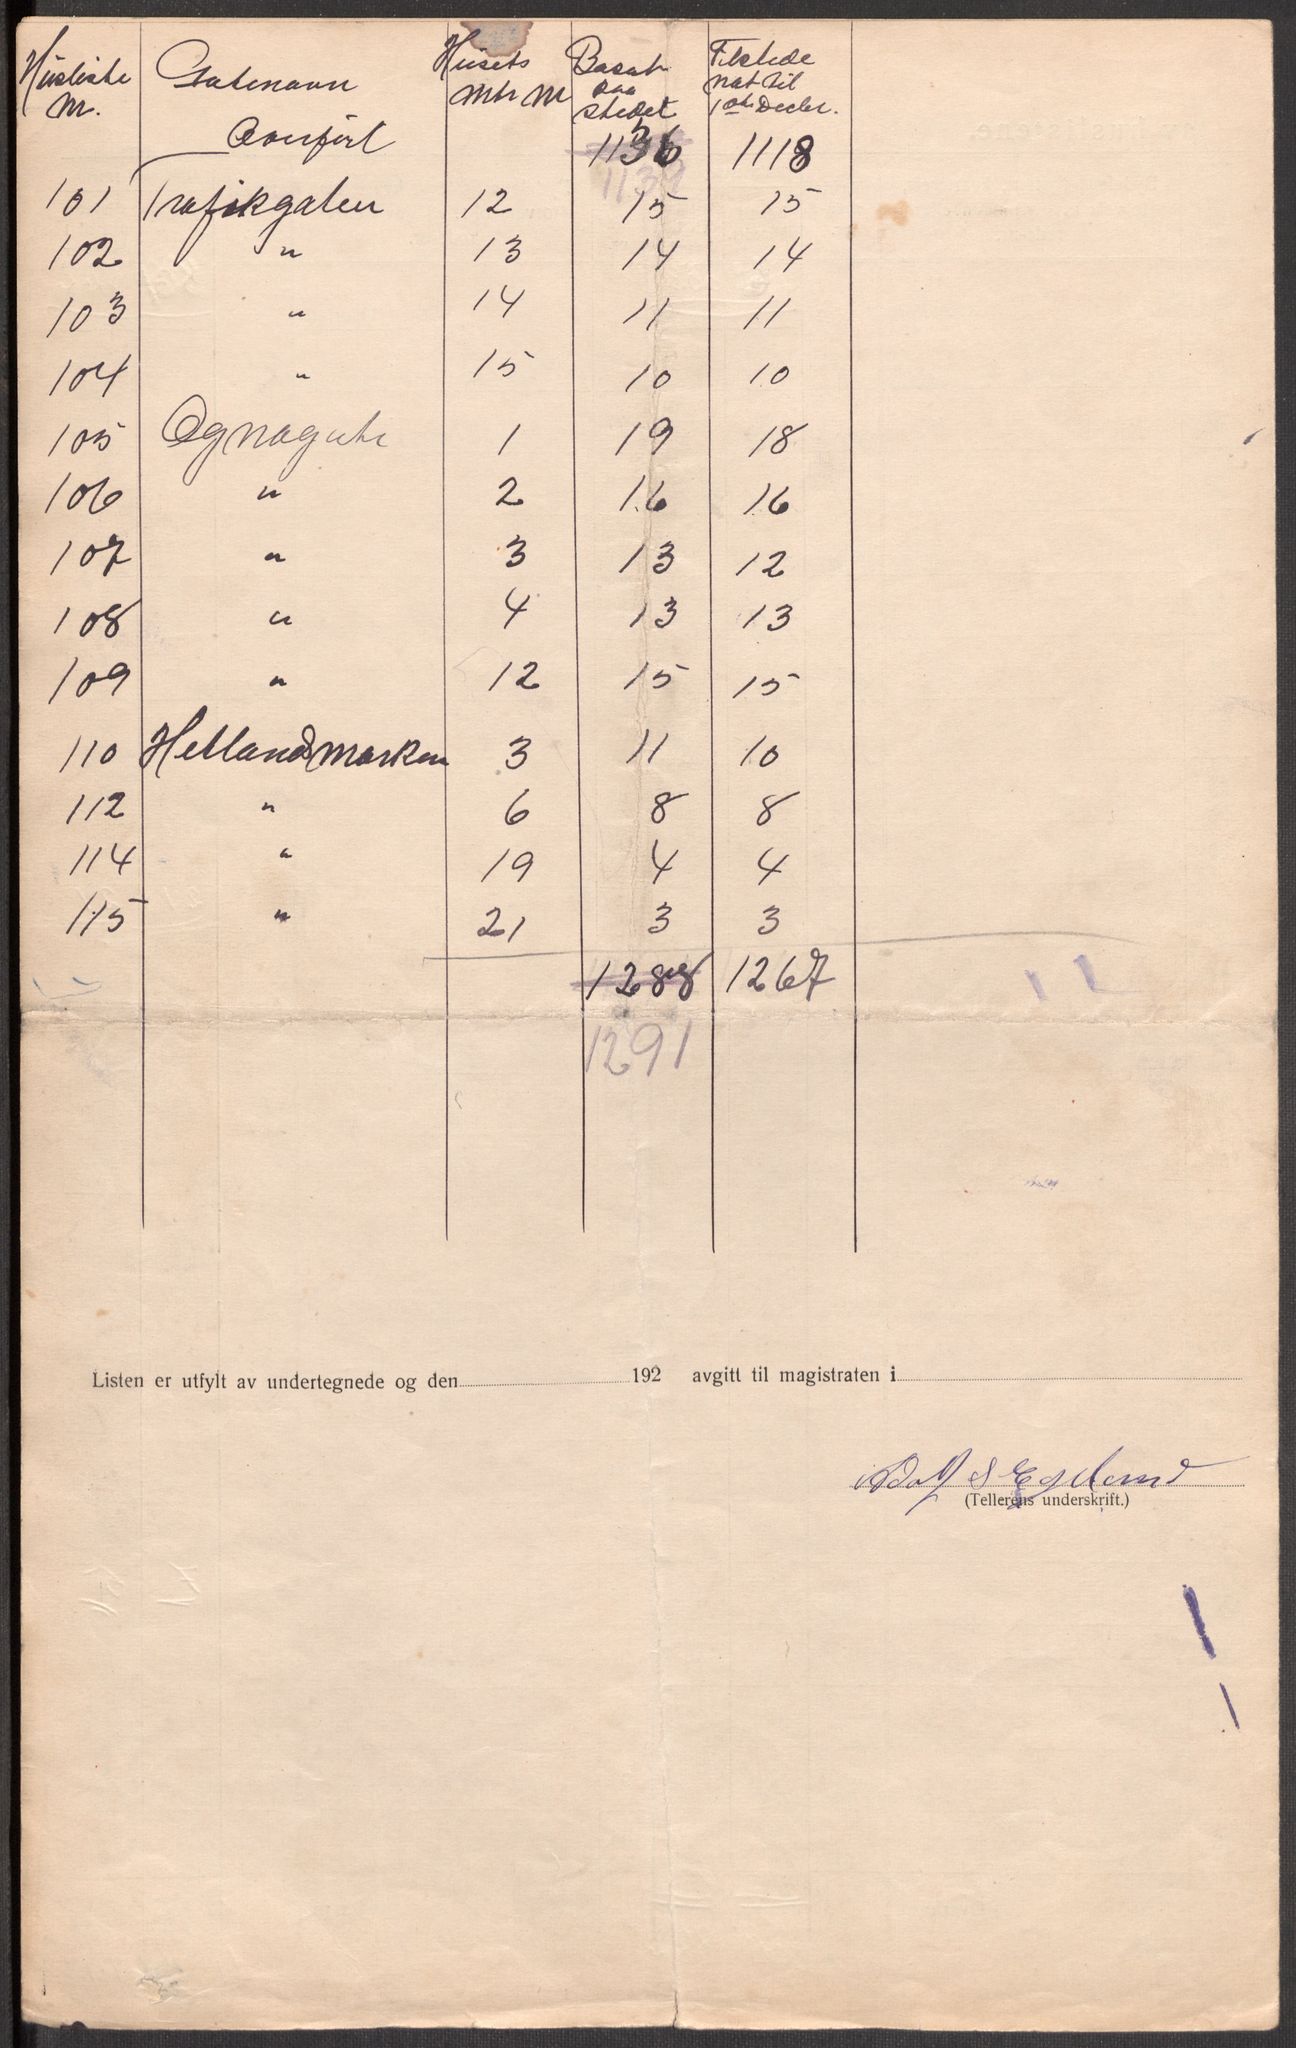 Husliste Nr. Gatenavn Husets Mtr Nr Bosat paa stedet Tilstede nat til 1ste Decbr.
Overført 1136 1118
1139
101 Trafikgaten 12 15 15
102 " 13 14 14
103 " 14 11 11
104 " 15 10 10
105 Ognagate 1 19 18
106 " 2 16 16
107 " 3 13 12
108 " 4 13 13
109 " 12 15 15
110 Hetlandsmarken 3 11 10
112 " 6 8 8
114 " 19 4 4
115 " 21 3 3
1288 1267
1291
Listen er utfylt av undertegnede og den 192 avgitt til magistraten i
Adolf S Egeland
(Tellerens underskrift.)